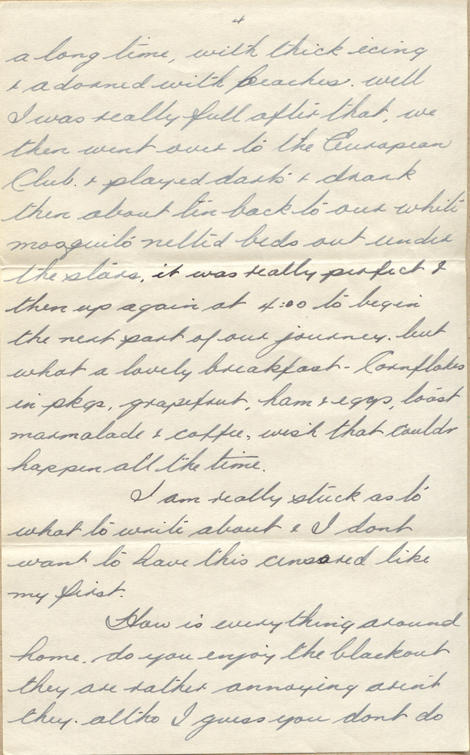 4
a long time, with thick icing
& adorned with peaches. well
I was really full after that, we
then went over to the European
Club. & played darts & drank
then about ten back to our white
mosquito netted beds out under
the stars, it was really perfect &
then up again at 4:00 to begin
the next part of our journey. but
what a lovely breakfast - Cornflakes
in pkgs, grapefruit, ham & eggs, toast
marmalade & coffee, wish that couldn
happen all the time.
I am really stuck as to
what to write about & I dont
want to have this censored like
my first.
How is everything around
home. do you enjoy the blackout
they are rather annoying arint
they. altho I guess you dont do